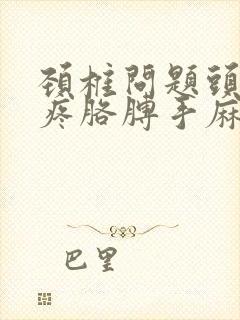 頚椎問題頭
疼胳膊手麻
巴里